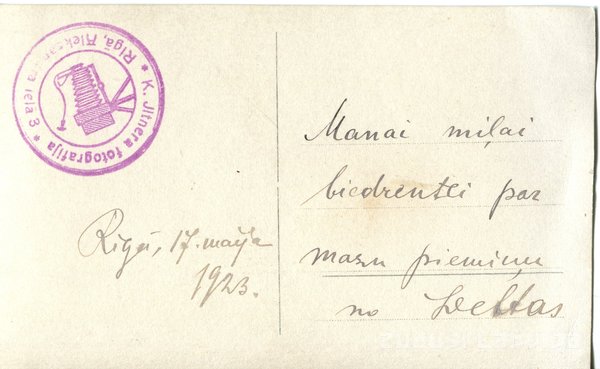 * K. Jtnera fotografija *
Rīgā, Aleksandra iela 3
Rīgā, 17. maija
1923.
Manai miļai
biedrentei par
mazu piemiņu
no Dettas